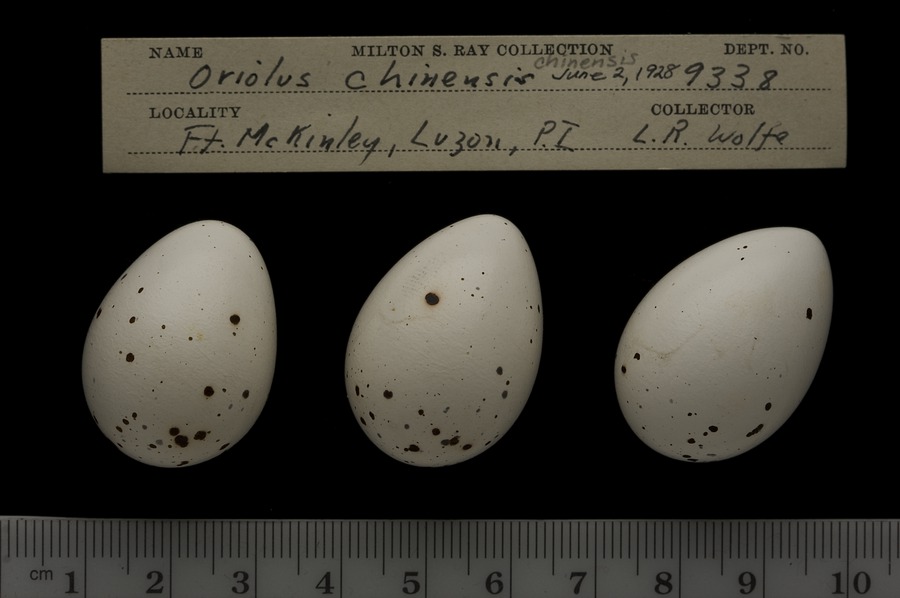 NAME MILTON S. RAY COLLECTION DEPT. NO.
chinensis
Oriolus chinensis June 2, 1928 9338
LOCALITY COLLECTOR
Ft. McKinley, Luzon, P.I L.R. Wolfe
cm 1 2 3 4 5 6 7 8 9 10